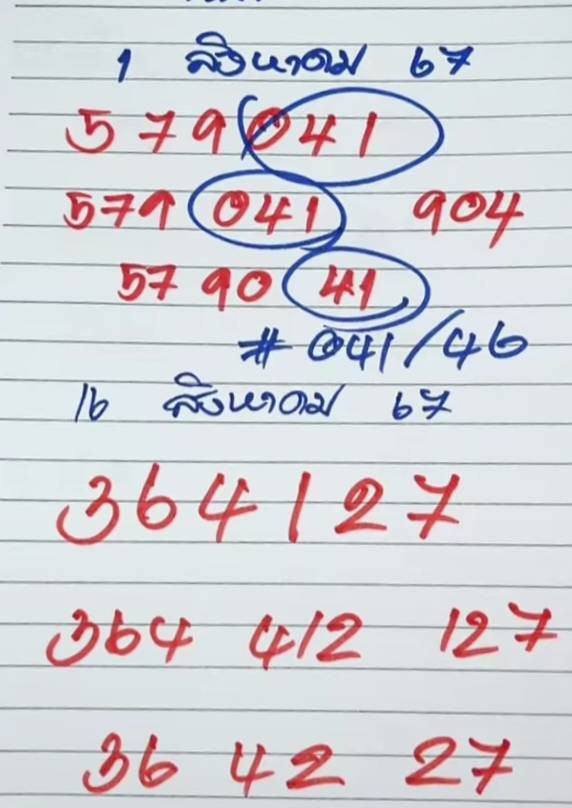 1 สิงหาคม 67
579041
579 041 904
57 90 41
# 041/46
16 สิงหาคม 67
364127
364 412 127
36 42 27